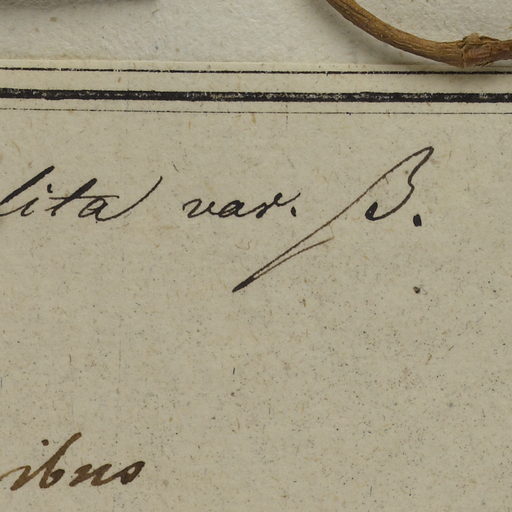 lita var. β.
ibus